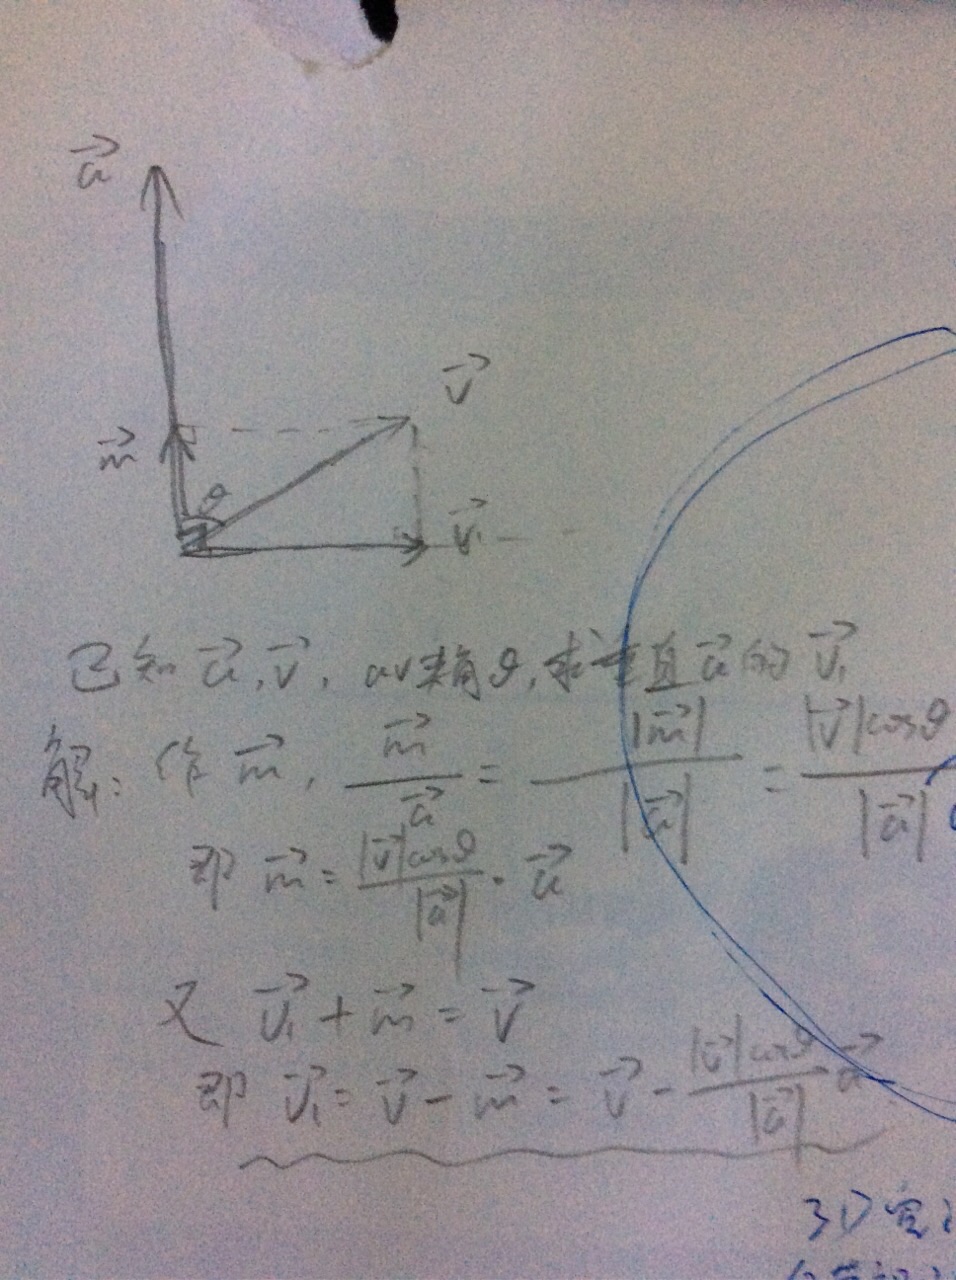 a⃗
v⃗
m⃗
θ
v⃗₁
已知 a⃗, v⃗, av夹角θ, 求垂直a⃗的 v⃗₁
解: 作 m⃗, m⃗/a⃗ = |m⃗|/|a⃗| = |v⃗|cosθ/|a⃗|
即 m⃗ = |v⃗|cosθ/|a⃗| · a⃗
又 v⃗₁ + m⃗ = v⃗
即 v⃗₁ = v⃗ - m⃗ = v⃗ - |v⃗|cosθ/|a⃗| a⃗
3D